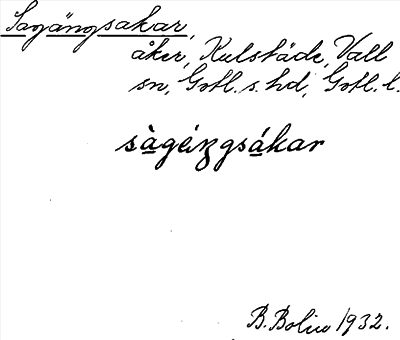 Sagängsakar,
åker, Kulstäde, Vall
sn, Gotl. s. hd, Gotl. l.
sàgéŋgsákar
B. Bolin 1932.